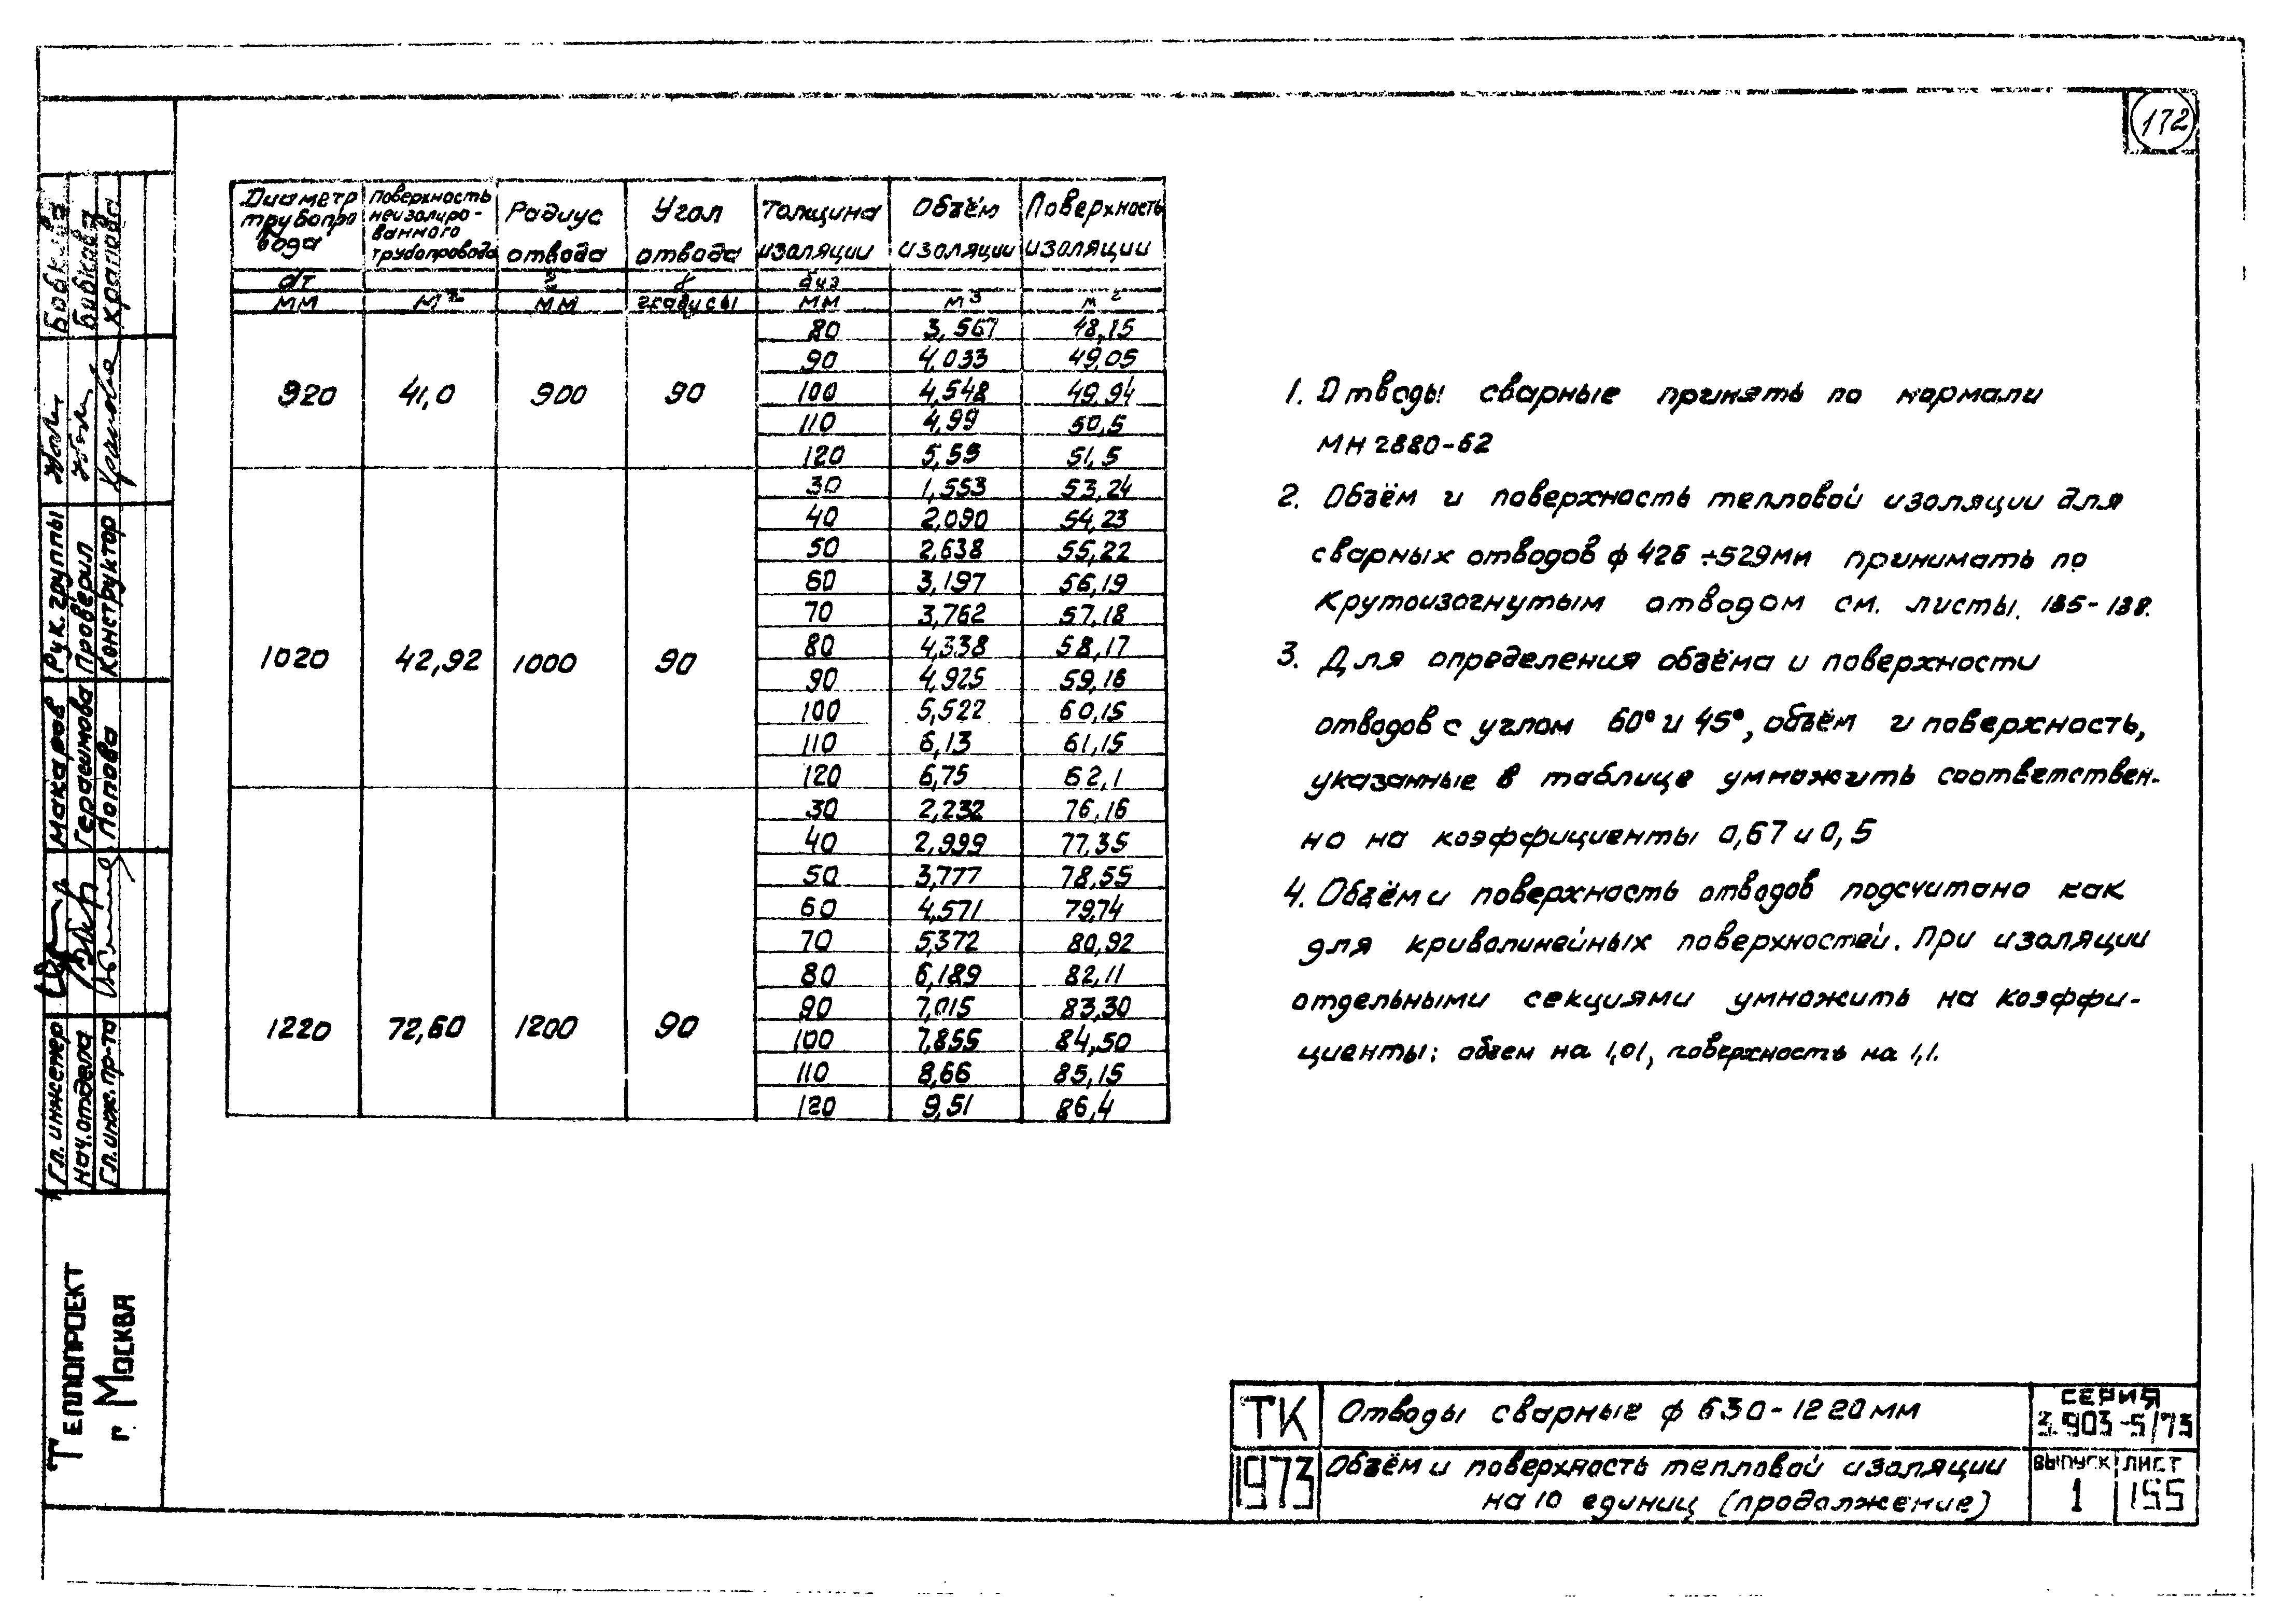 172
Диаметр трубопровода Поверхность неизолированного трубопровода Радиус отвода Угол отвода Толщина изоляции Объём изоляции Поверхность изоляции
dт r γ биз
мм м² мм градусы мм м³ м²
80 3,567 48,15
90 4,033 49,05
920 41,0 900 90 100 4,548 49,94
110 4,99 50,5
120 5,55 51,5
30 1,553 53,24
40 2,090 54,23
50 2,638 55,22
60 3,197 56,19
70 3,762 57,18
1020 42,92 1000 90 80 4,338 58,17
90 4,925 59,16
100 5,522 60,15
110 6,13 61,15
120 6,75 62,1
30 2,232 76,16
40 2,999 77,35
50 3,777 78,55
60 4,571 79,74
70 5,372 80,92
80 6,189 82,11
90 7,015 83,30
1220 72,60 1200 90 100 7,855 84,50
110 8,66 85,15
120 9,51 86,4
1. Отводы сварные принять по нормали
МН 2880-62
2. Объём и поверхность тепловой изоляции для
сварных отводов ф 426 ÷529мм принимать по
крутоизогнутым отводом см. листы. 135-138.
3. Для определения объёма и поверхности
отводов с углом 60° и 45°, объём и поверхность,
указанные в таблице умножить соответствен-
но на коэффициенты 0,67 и 0,5
4. Объём и поверхность отводов подсчитано как
для криволинейных поверхностей. При изоляции
отдельными секциями умножить на коэффи-
циенты: объем на 1,01, поверхность на 1,1.
ТК Отводы сварные ф 630-1220мм СЕРИЯ
3.903-5/73
1973 Объём и поверхность тепловой изоляции
на 10 единиц (продолжение)
ВЫПУСК ЛИСТ
1 155
Теплопроект
г. Москва
Гл. инженер Макаров Рук. группы Бобкова
Нач. отдела Герасимова Проверил Бобкова
Гл. инж. пр-та Попова Конструктор Храпова